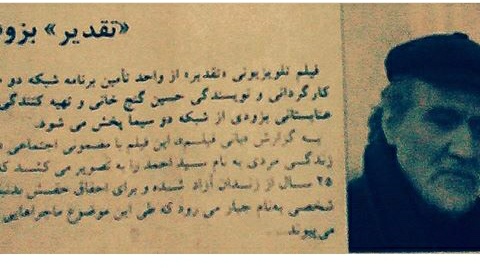 «تقدیر» بزو
فیلم تلویزیونی «تقدیر» از واحد تأمین برنامه شبکه دو
کارگردانی و نویسندگی حسین گنج خانی و تهیه کنندگی
عنایستانی بزودی از شبکه دو سیما پخش می شود.
به گزارش «بانی فیلم» این فیلم با مضمونی اجتماعی
زندگی مردی به نام سید احمد را به تصویر می کشد که
۲۵ سال از زندان آزاد شده و برای احقاق حقش بدنبا
شخصی به‌نام جبار می رود که طی این موضوع ماجراهایی
می‌پیوند